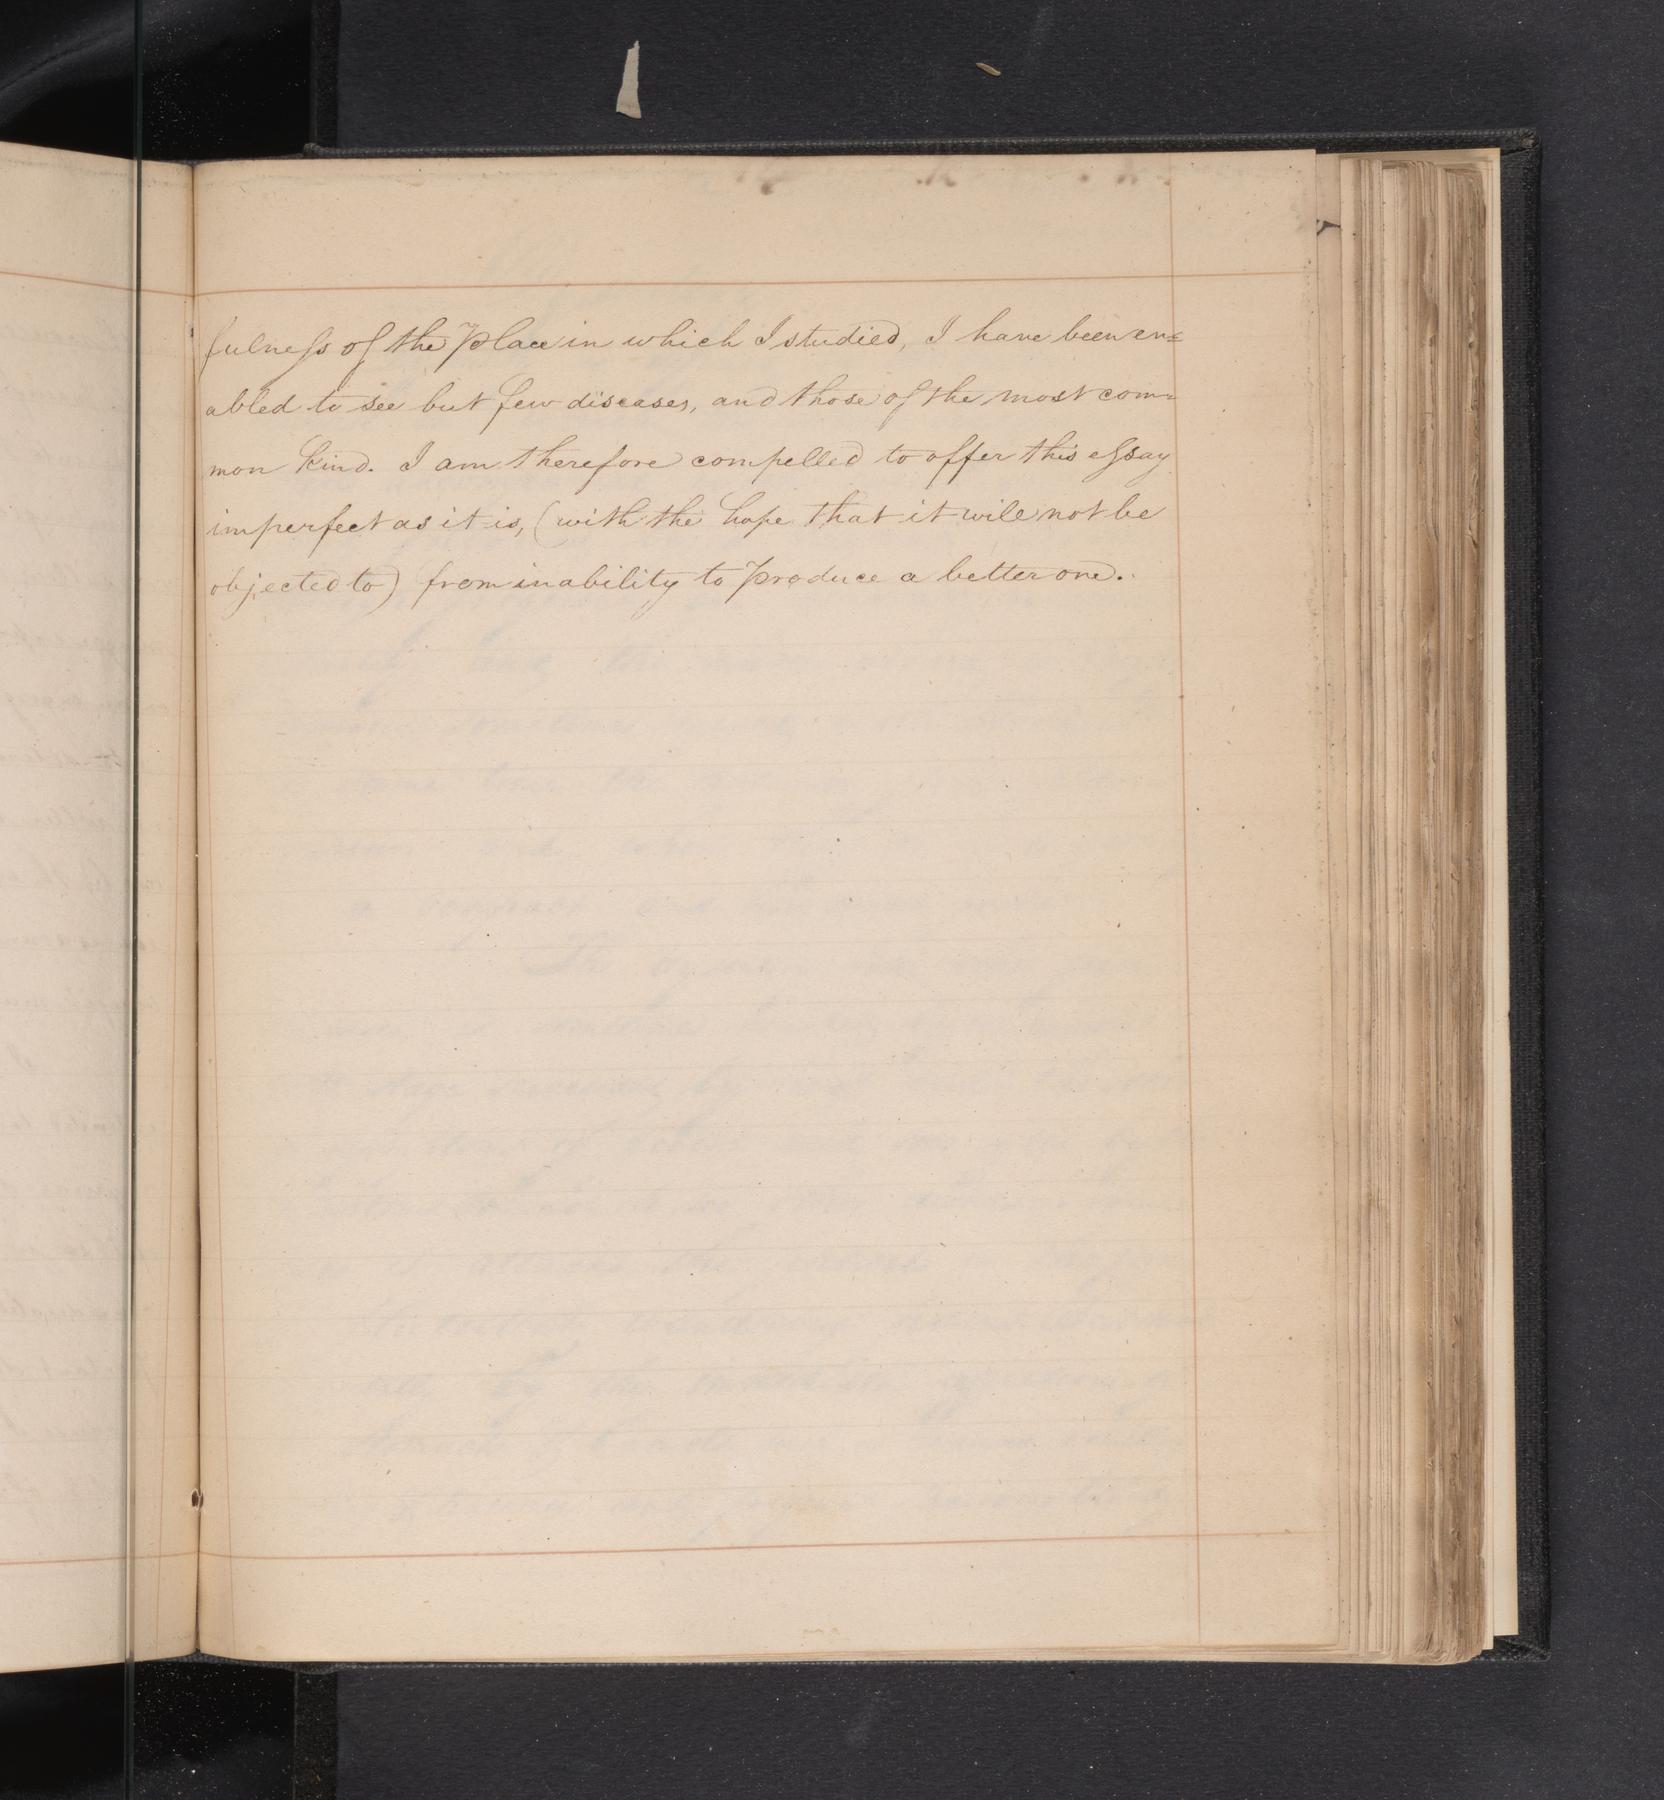 fulness of the place in which I studied, I have been en=
abled to see but few diseases, and those of the most com=
mon kind. I am therefore compelled to offer this essay
imperfect as it is, (with the hope that it will not be
objected to) from inability to produce a better one.